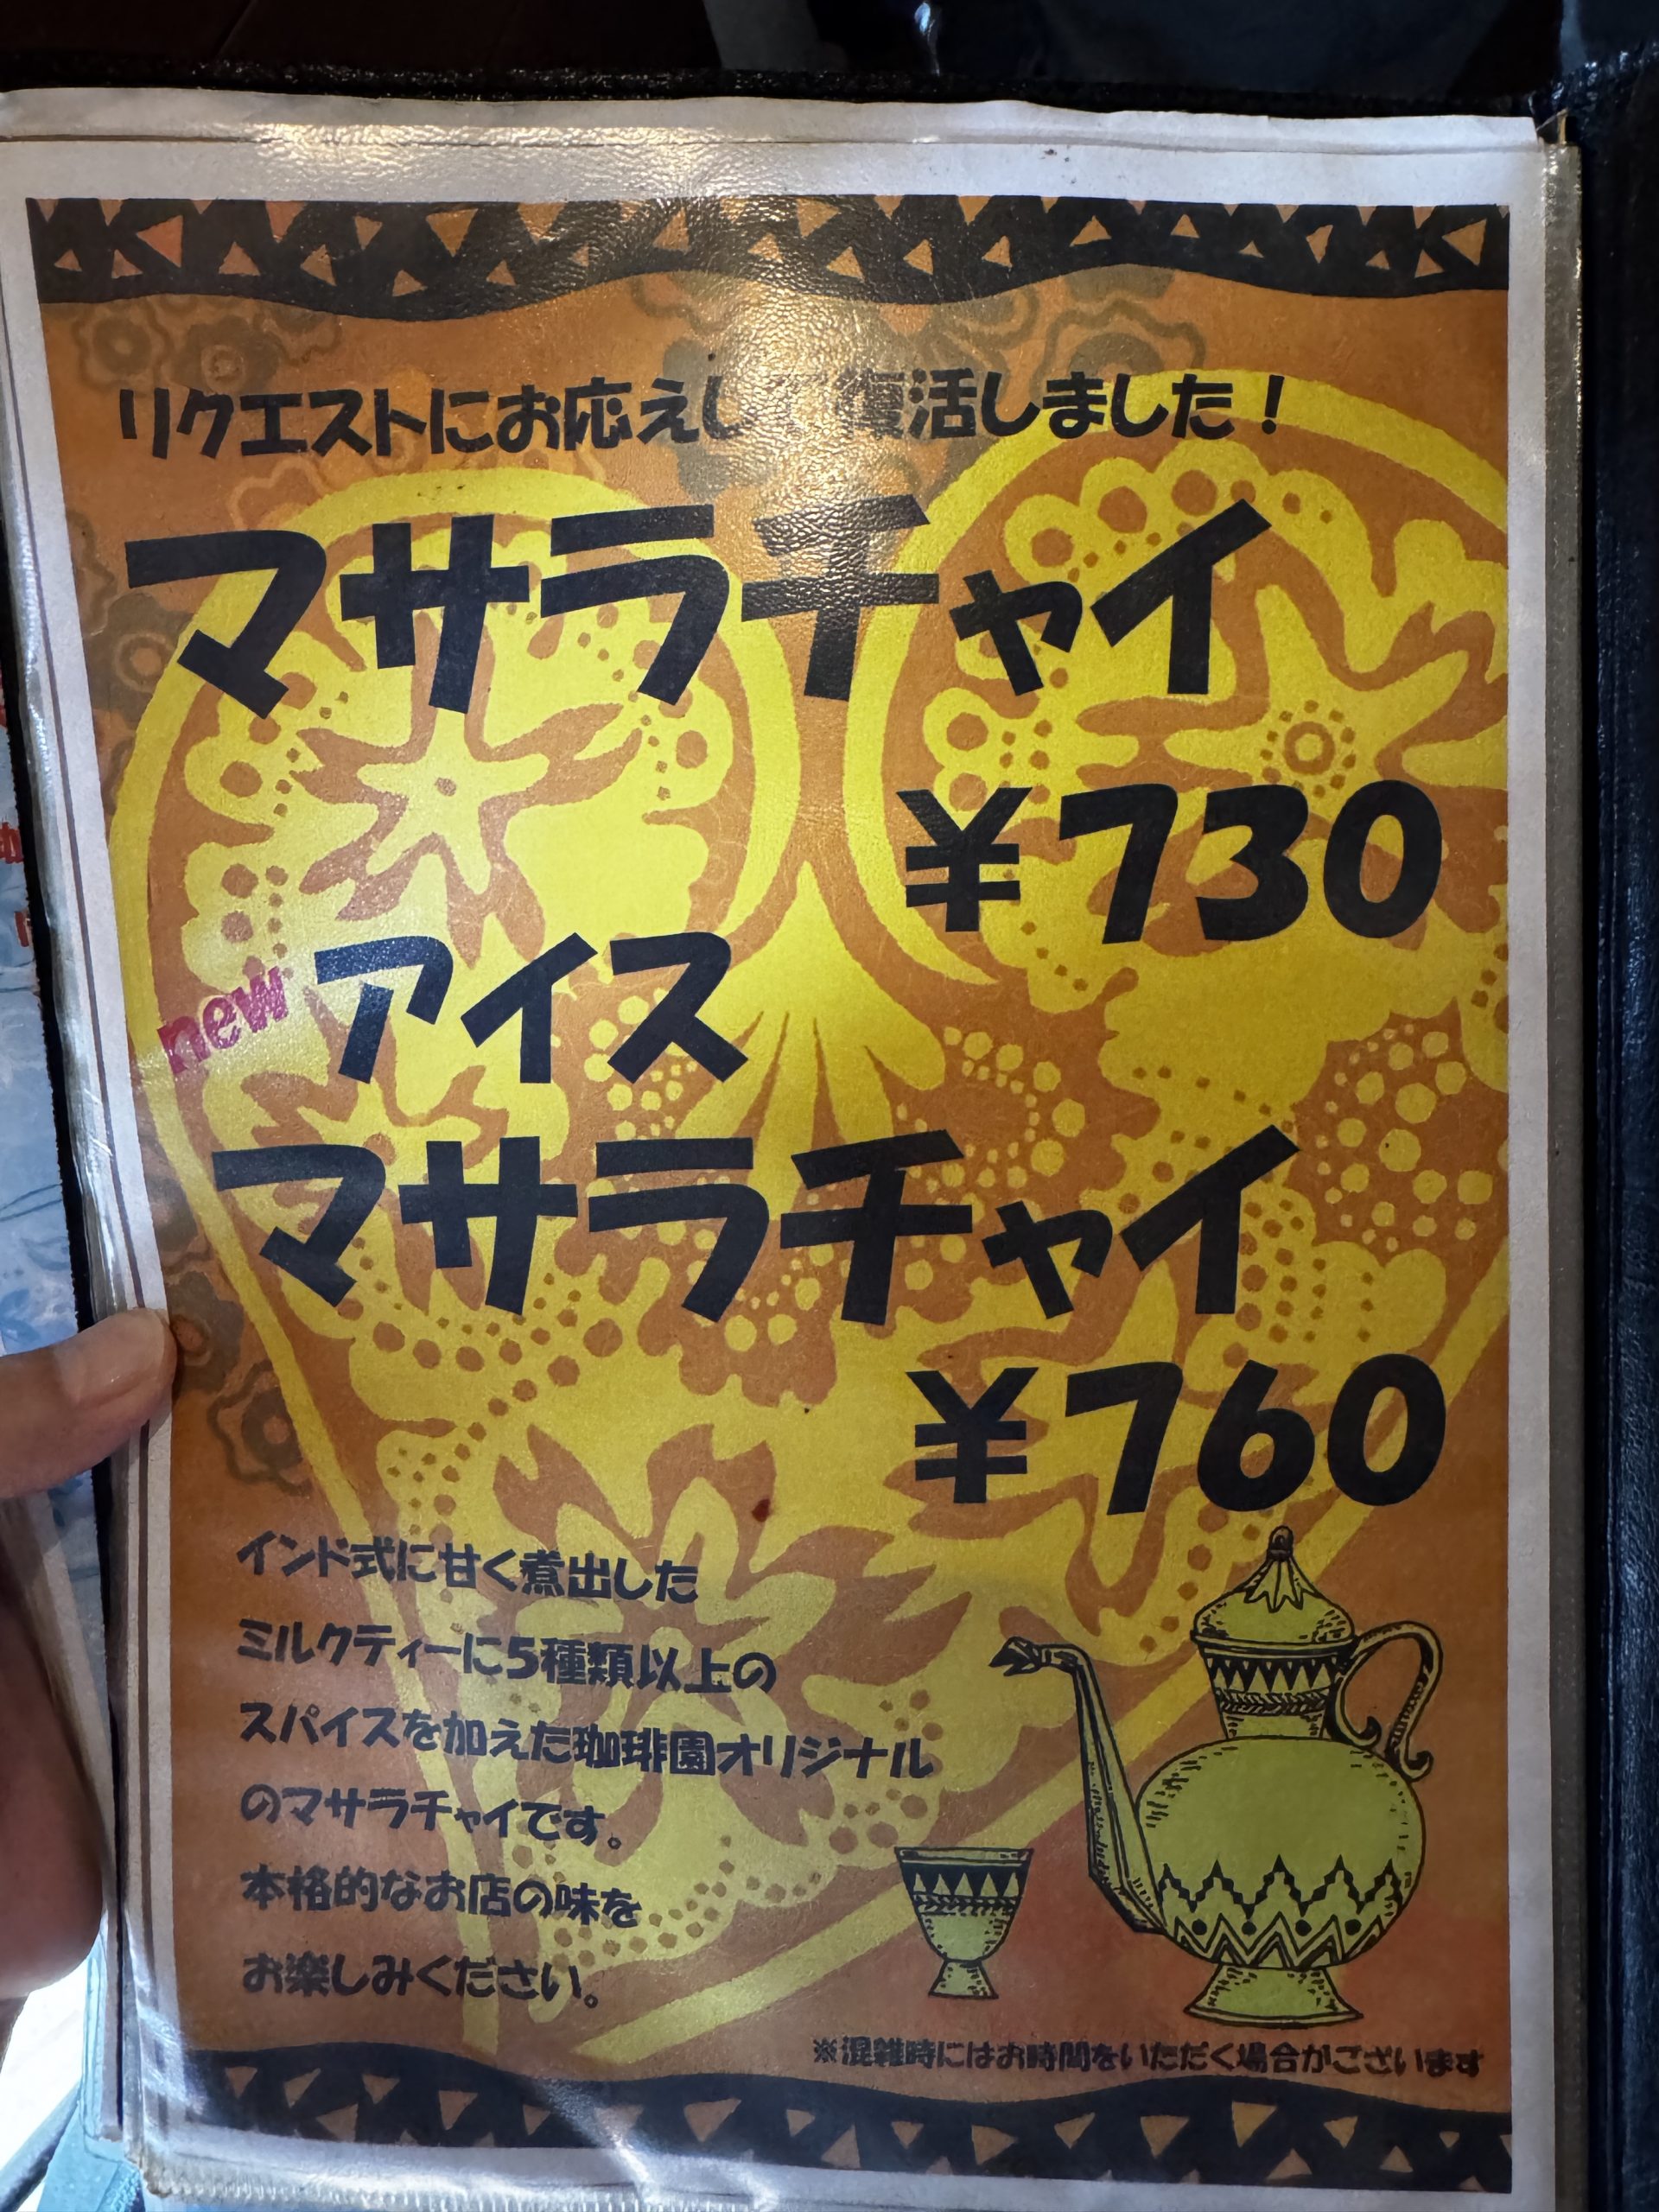 リクエストにお応えして復活しました！
マサラチャイ
¥730
new アイス
マサラチャイ
¥760
インド式に甘く煮出した
ミルクティーに5種類以上の
スパイスを加えた珈琲園オリジナル
のマサラチャイです。
本格的なお店の味を
お楽しみください。
※混雑時にはお時間をいただく場合がございます